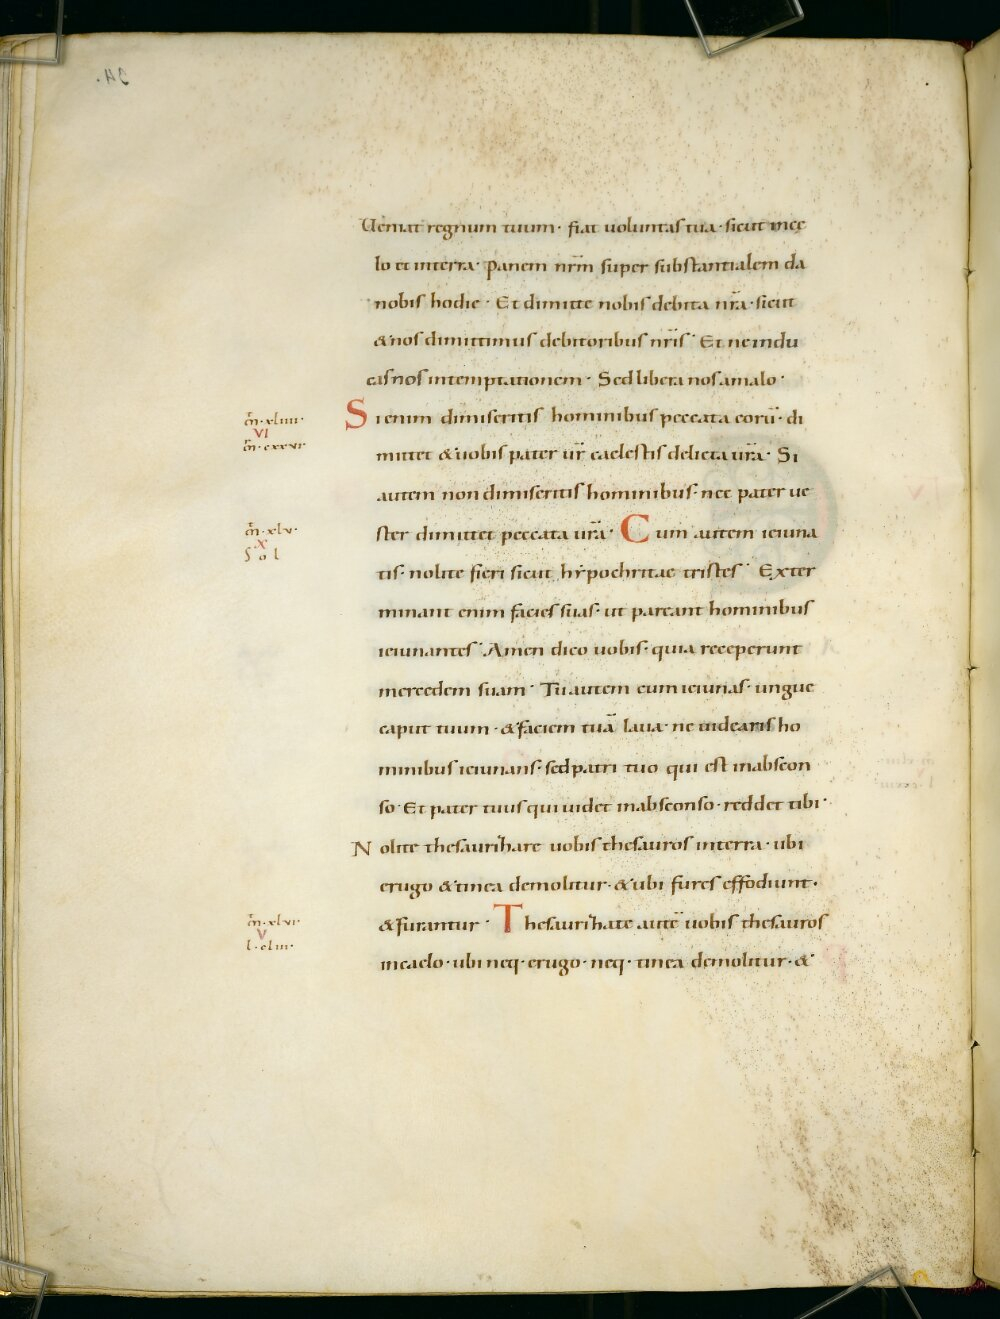 Ueniat regnum tuum · fiat uoluntas tua · sicut incę
lo et interra · panem nr̄m super substantialem da
nobis hodie · Et dimitte nobis debita nr̄a · sicut
& nos dimittimus debitoribus nr̄is · Et ne indu
cas nos intemptationem · Sed libera nos amalo ·
Si enim dimiseritis hominibus peccata eorū · di
mittet & uobis pater ur̄ caelestis delicta ur̄a · Si
autem non dimiseritis hominibus · nec pater ue
ster dimittet peccata ur̄a · Cum autem ieiuna
tis · nolite fieri sicut hypochritae tristes · Exter
minant enim facies suas · ut pareant hominibus
ieiunantes · Amen dico uobis · quia receperunt
mercedem suam · Tu autem cum ieiunas · ungue
caput tuum · & faciem tuā laua · ne uidearis ho
minibus ieiunans · sed patri tuo qui est inabscon
so · Et pater tuus qui uidet inabsconso · reddet tibi ·
Nolite thesaurihare uobis thesauros interra · ubi
erugo & tinea demolitur · & ubi fures effodiunt ·
& furantur · Thesaurihate autē uobis thesauros
incaelo · ubi neq · erugo · neq · tinea demolitur · &
m̄ · xliiii ·
VI
m̄ · cxxvi ·
m̄ · xlv ·
X
Sol
m̄ · xlvi ·
V
l · cliii ·
24.